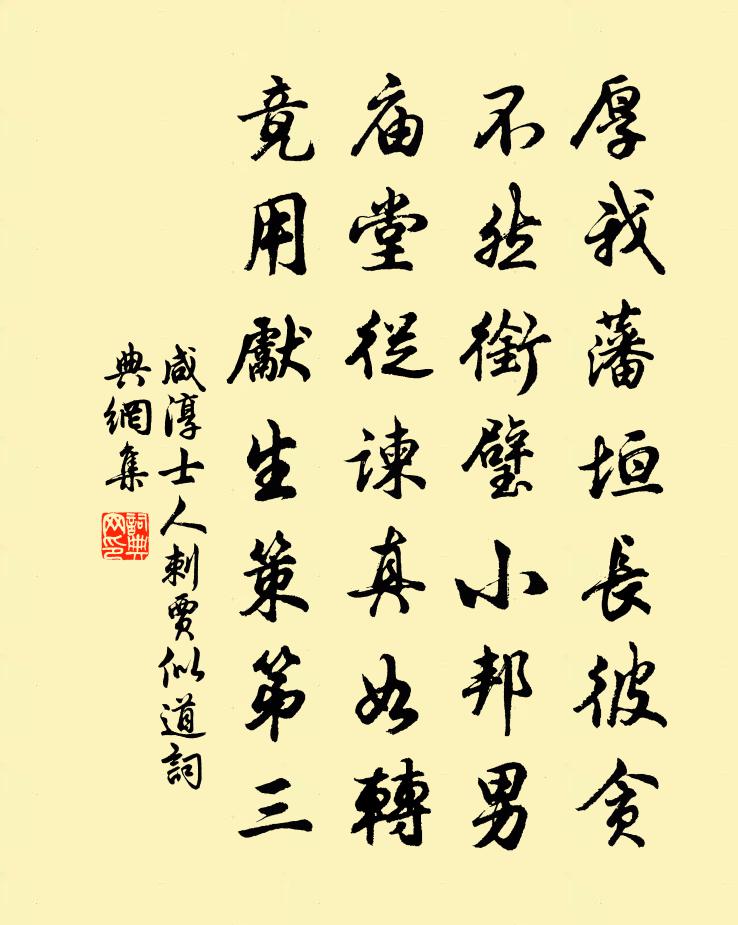 厚我藩垣長彼貪
不然銜璧小邦男
庙堂從諫真如轉
竟用獻生策第三
咸淳士人刺賈似道詞
典網集
詞典
网印